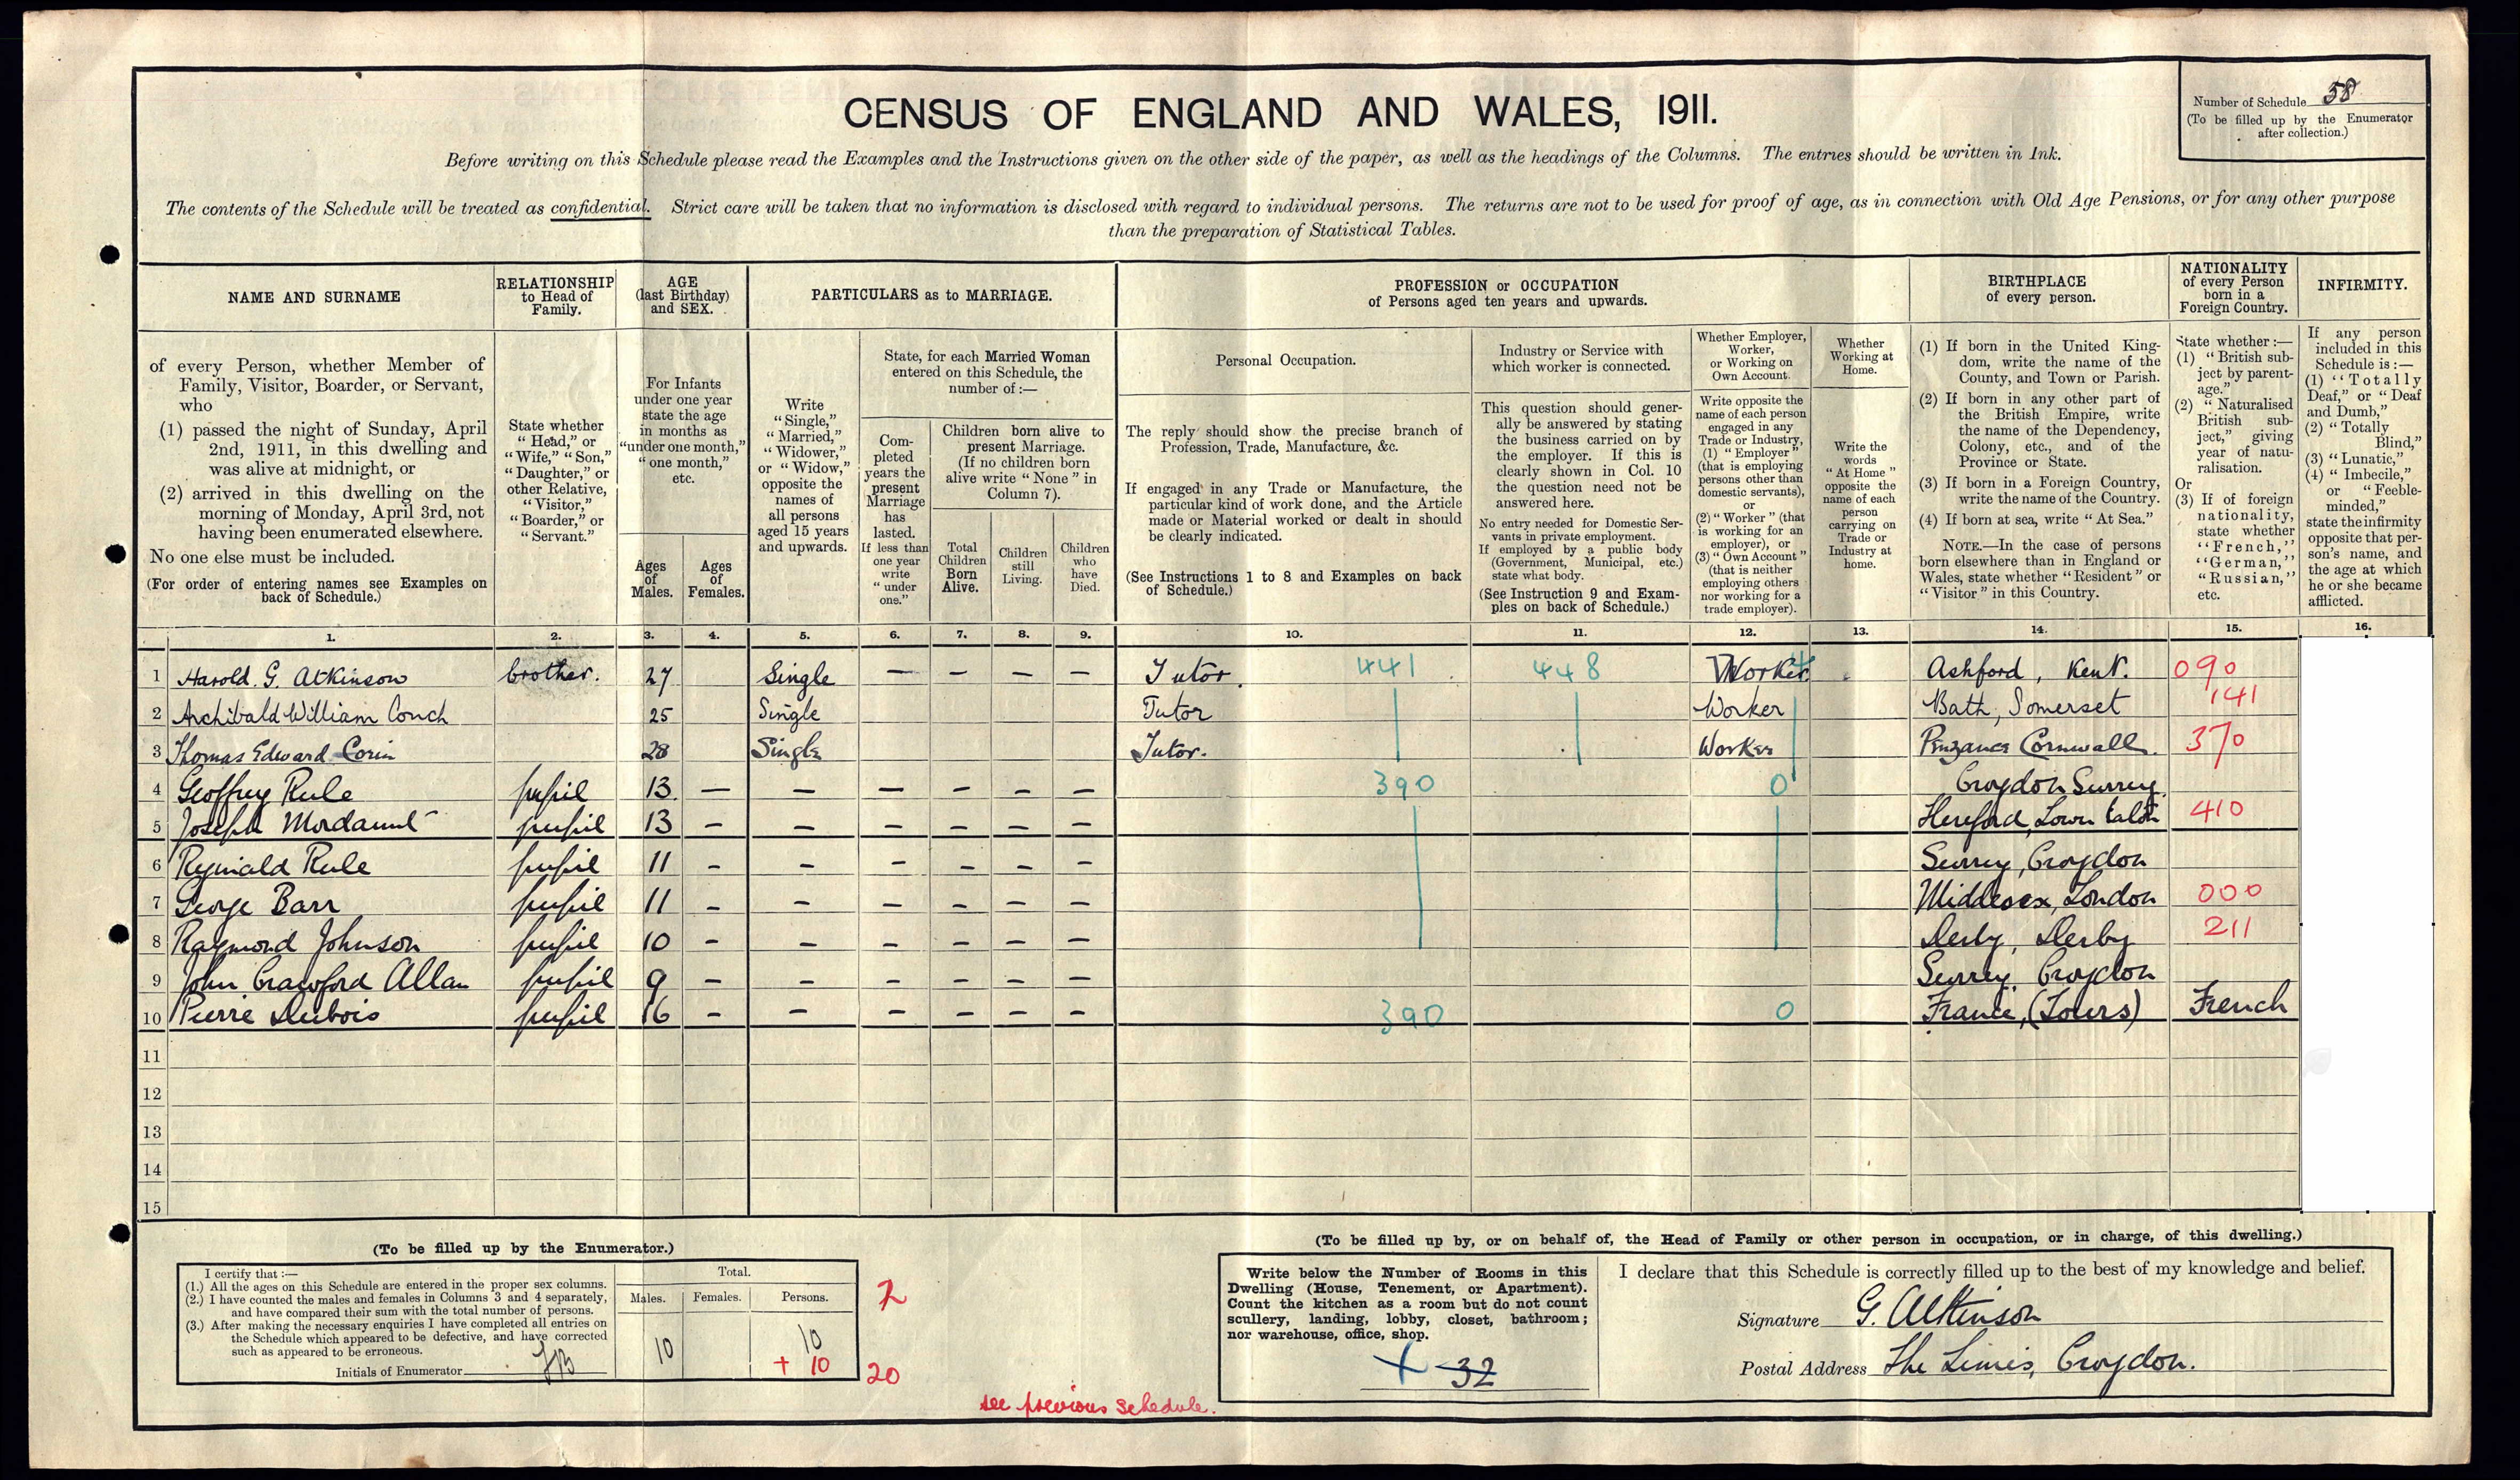 CENSUS OF ENGLAND AND WALES, 1911.
Number of Schedule 58
(To be filled up by the Enumerator
after collection.)
Before writing on this Schedule please read the Examples and the Instructions given on the other side of the paper, as well as the headings of the Columns. The entries should be written in Ink.
The contents of the Schedule will be treated as confidential. Strict care will be taken that no information is disclosed with regard to individual persons. The returns are not to be used for proof of age, as in connection with Old Age Pensions, or for any other purpose
than the preparation of Statistical Tables.
NAME AND SURNAME
of every Person, whether Member of
Family, Visitor, Boarder, or Servant,
who
(1) passed the night of Sunday, April
2nd, 1911, in this dwelling and
was alive at midnight, or
(2) arrived in this dwelling on the
morning of Monday, April 3rd, not
having been enumerated elsewhere.
No one else must be included.
(For order of entering names see Examples on
back of Schedule.)
RELATIONSHIP
to Head of
Family.
State whether
"Head," or
"Wife," "Son,"
"Daughter," or
other Relative,
"Visitor,"
"Boarder," or
"Servant."
AGE
(last Birthday)
and SEX.
For Infants
under one year
state the age
in months as
"under one month,"
"one month,"
etc.
Ages
of
Males.
Ages
of
Females.
PARTICULARS as to MARRIAGE.
Write
"Single,"
"Married,"
"Widower,"
or "Widow,"
opposite the
names of
all persons
aged 15 years
and upwards.
State, for each Married Woman
entered on this Schedule, the
number of :—
Com-
pleted
years the
present
Marriage
has
lasted.
If less than
one year
write
"under
one."
Children born alive to
present Marriage.
(If no children born
alive write "None" in
Column 7).
Total
Children
Born
Alive.
Children
still
Living.
Children
who
have
Died.
PROFESSION or OCCUPATION
of Persons aged ten years and upwards.
Personal Occupation.
The reply should show the precise branch of
Profession, Trade, Manufacture, &c.
If engaged in any Trade or Manufacture, the
particular kind of work done, and the Article
made or Material worked or dealt in should
be clearly indicated.
(See Instructions 1 to 8 and Examples on back
of Schedule.)
Industry or Service with
which worker is connected.
This question should gener-
ally be answered by stating
the business carried on by
the employer. If this is
clearly shown in Col. 10
the question need not be
answered here.
No entry needed for Domestic Ser-
vants in private employment.
If employed by a public body
(Government, Municipal, etc.)
state what body.
(See Instruction 9 and Exam-
ples on back of Schedule.)
Whether Employer,
Worker,
or Working on
Own Account.
Write opposite the
name of each person
engaged in any
Trade or Industry,
(1) "Employer"
(that is employing
persons other than
domestic servants),
or
(2) "Worker" (that
is working for an
employer), or
(3) "Own Account"
(that is neither
employing others
nor working for a
trade employer).
Whether
Working at
Home.
Write the
words
"At Home"
opposite the
name of each
person
carrying on
Trade or
Industry at
home.
BIRTHPLACE
of every person.
(1) If born in the United King-
dom, write the name of the
County, and Town or Parish.
(2) If born in any other part of
the British Empire, write
the name of the Dependency,
Colony, etc., and of the
Province or State.
(3) If born in a Foreign Country,
write the name of the Country.
(4) If born at sea, write "At Sea."
NOTE.—In the case of persons
born elsewhere than in England or
Wales, state whether "Resident" or
"Visitor" in this Country.
NATIONALITY
of every Person
born in a
Foreign Country.
State whether :—
(1) "British sub-
ject by parent-
age."
(2) "Naturalised
British sub-
ject," giving
year of natu-
ralisation.
Or
(3) If of foreign
nationality,
state whether
"French,"
"German,"
"Russian,"
etc.
INFIRMITY.
If any person
included in this
Schedule is :—
(1) "Totally
Deaf," or "Deaf
and Dumb,"
(2) "Totally
Blind,"
(3) "Lunatic,"
(4) "Imbecile,"
or "Feeble-
minded,"
state the infirmity
opposite that per-
son's name, and
the age at which
he or she became
afflicted.
1. 2. 3. 4. 5. 6. 7. 8. 9. 10. 11. 12. 13. 14. 15. 16.
1 Harold G. Atkinson brother. 27 Single — — — — Tutor. 441 448 Worker Ashford, Kent. 090
2 Archibald William Couch 25 Single Tutor Worker Bath, Somerset 141
3 Thomas Edward Corin 28 Single Tutor. Worker Penzance Cornwall. 370
4 Geoffrey Rule pupil 13 — — — — — — 390 0 Croydon Surrey.
5 Joseph Mordaunt pupil 13 — — — — — — Hereford, 410
6 Reginald Rule pupil 11 — — — — — — Surrey, Croydon
7 George Barr pupil 11 — — — — — — Middlesex, London 000
8 Raymond Johnson pupil 10 — — — — — — Derby, Derby 211
9 John Crawford Allan pupil 9 — — — — — — Surrey, Croydon
10 Pierre Dubois pupil 16 — — — — — — 390 0 France, (Tours) French
11
12
13
14
15
(To be filled up by the Enumerator.)
I certify that :—
(1.) All the ages on this Schedule are entered in the proper sex columns.
(2.) I have counted the males and females in Columns 3 and 4 separately,
and have compared their sum with the total number of persons.
(3.) After making the necessary enquiries I have completed all entries on
the Schedule which appeared to be defective, and have corrected
such as appeared to be erroneous.
Initials of Enumerator
Total.
Males. Females. Persons.
10 10
+ 10 20
see previous schedule.
(To be filled up by, or on behalf of, the Head of Family or other person in occupation, or in charge, of this dwelling.)
Write below the Number of Rooms in this
Dwelling (House, Tenement, or Apartment).
Count the kitchen as a room but do not count
scullery, landing, lobby, closet, bathroom;
nor warehouse, office, shop.
32
I declare that this Schedule is correctly filled up to the best of my knowledge and belief.
Signature G. Atkinson
Postal Address The Limes, Croydon.